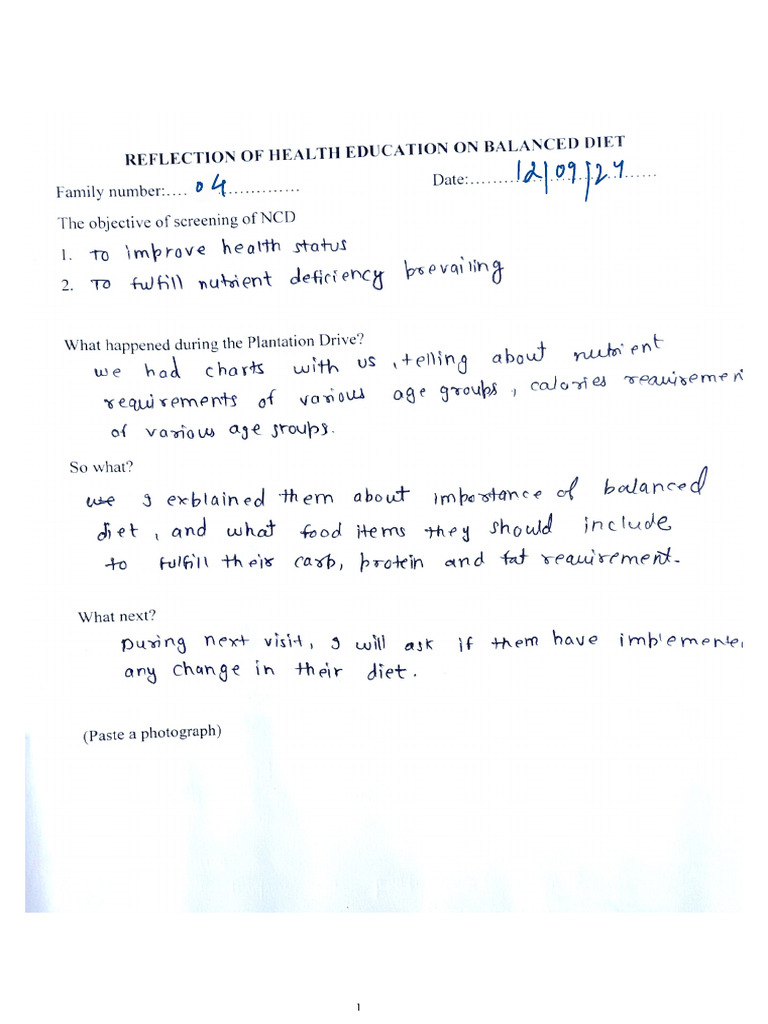 REFLECTION OF HEALTH EDUCATION ON BALANCED DIET
Family number:.... 04 ............. Date:........12/09/24......
The objective of screening of NCD
1. To improve health status
2. To fulfill nutrient deficiency prevailing
What happened during the Plantation Drive?
we had charts with us , telling about nutrient
requirements of various age groups , calories requiremen
of various age groups.
So what?
we I explained them about importance of balanced
diet , and what food items they should include
to fulfill their carb, protein and fat requirement.
What next?
During next visit, I will ask if them have implemente
any change in their diet.
(Paste a photograph)
1